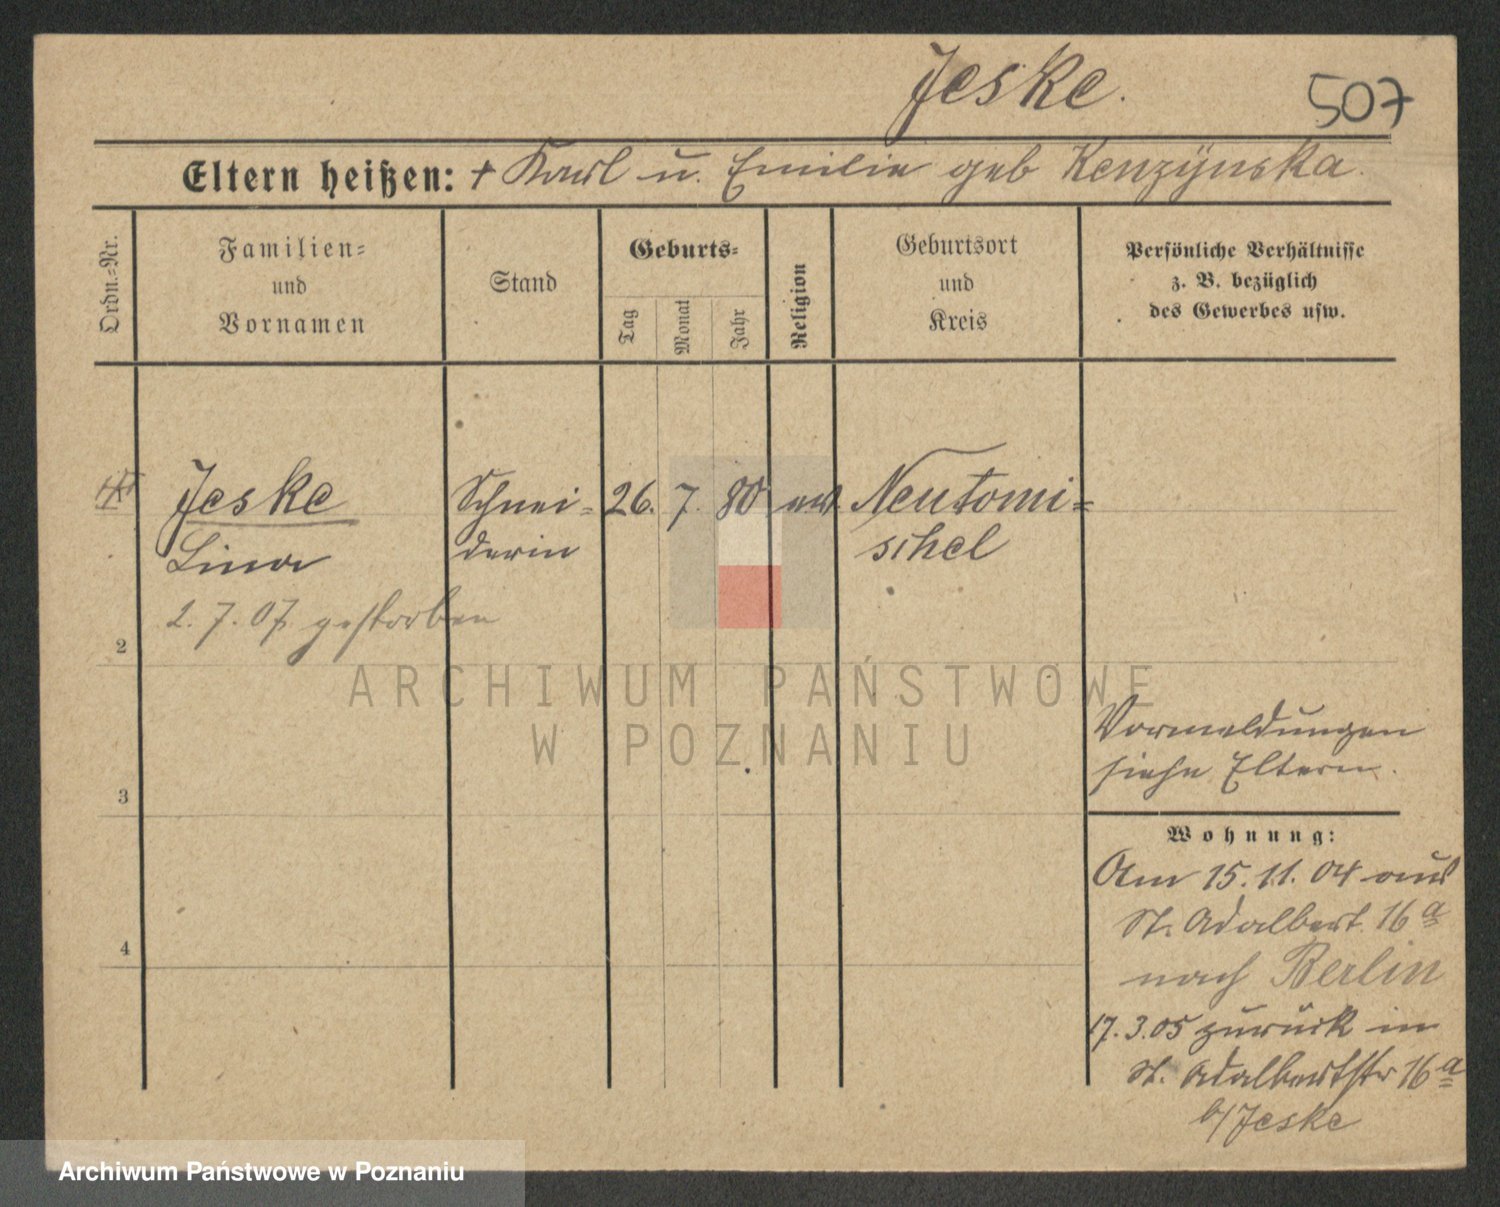 Jeske.
507
Eltern heißen: + Karl u. Emilie geb Kenzynska.
Ordn.=Nr.
Familien=
und
Vornamen
Stand
Geburts=
Tag
Monat
Jahr
Religion
Geburtsort
und
Kreis
Persönliche Verhältnisse
z. B. bezüglich
des Gewerbes usw.
Jeske Schnei= 26. 7. 80 ev. Neutomi=
Lina derin schel
2. 7. 07. gestorben
2
ARCHIWUM PAŃSTWOWE
W POZNANIU
Vormeldungen
siehe Eltern.
3
Wohnung:
Am 15.11.04 aus
St. Adalbert. 16a
4
nach Berlin
17.3.05 zurück in
St. Adalbertstr 16a
b/Jeske
Archiwum Państwowe w Poznaniu